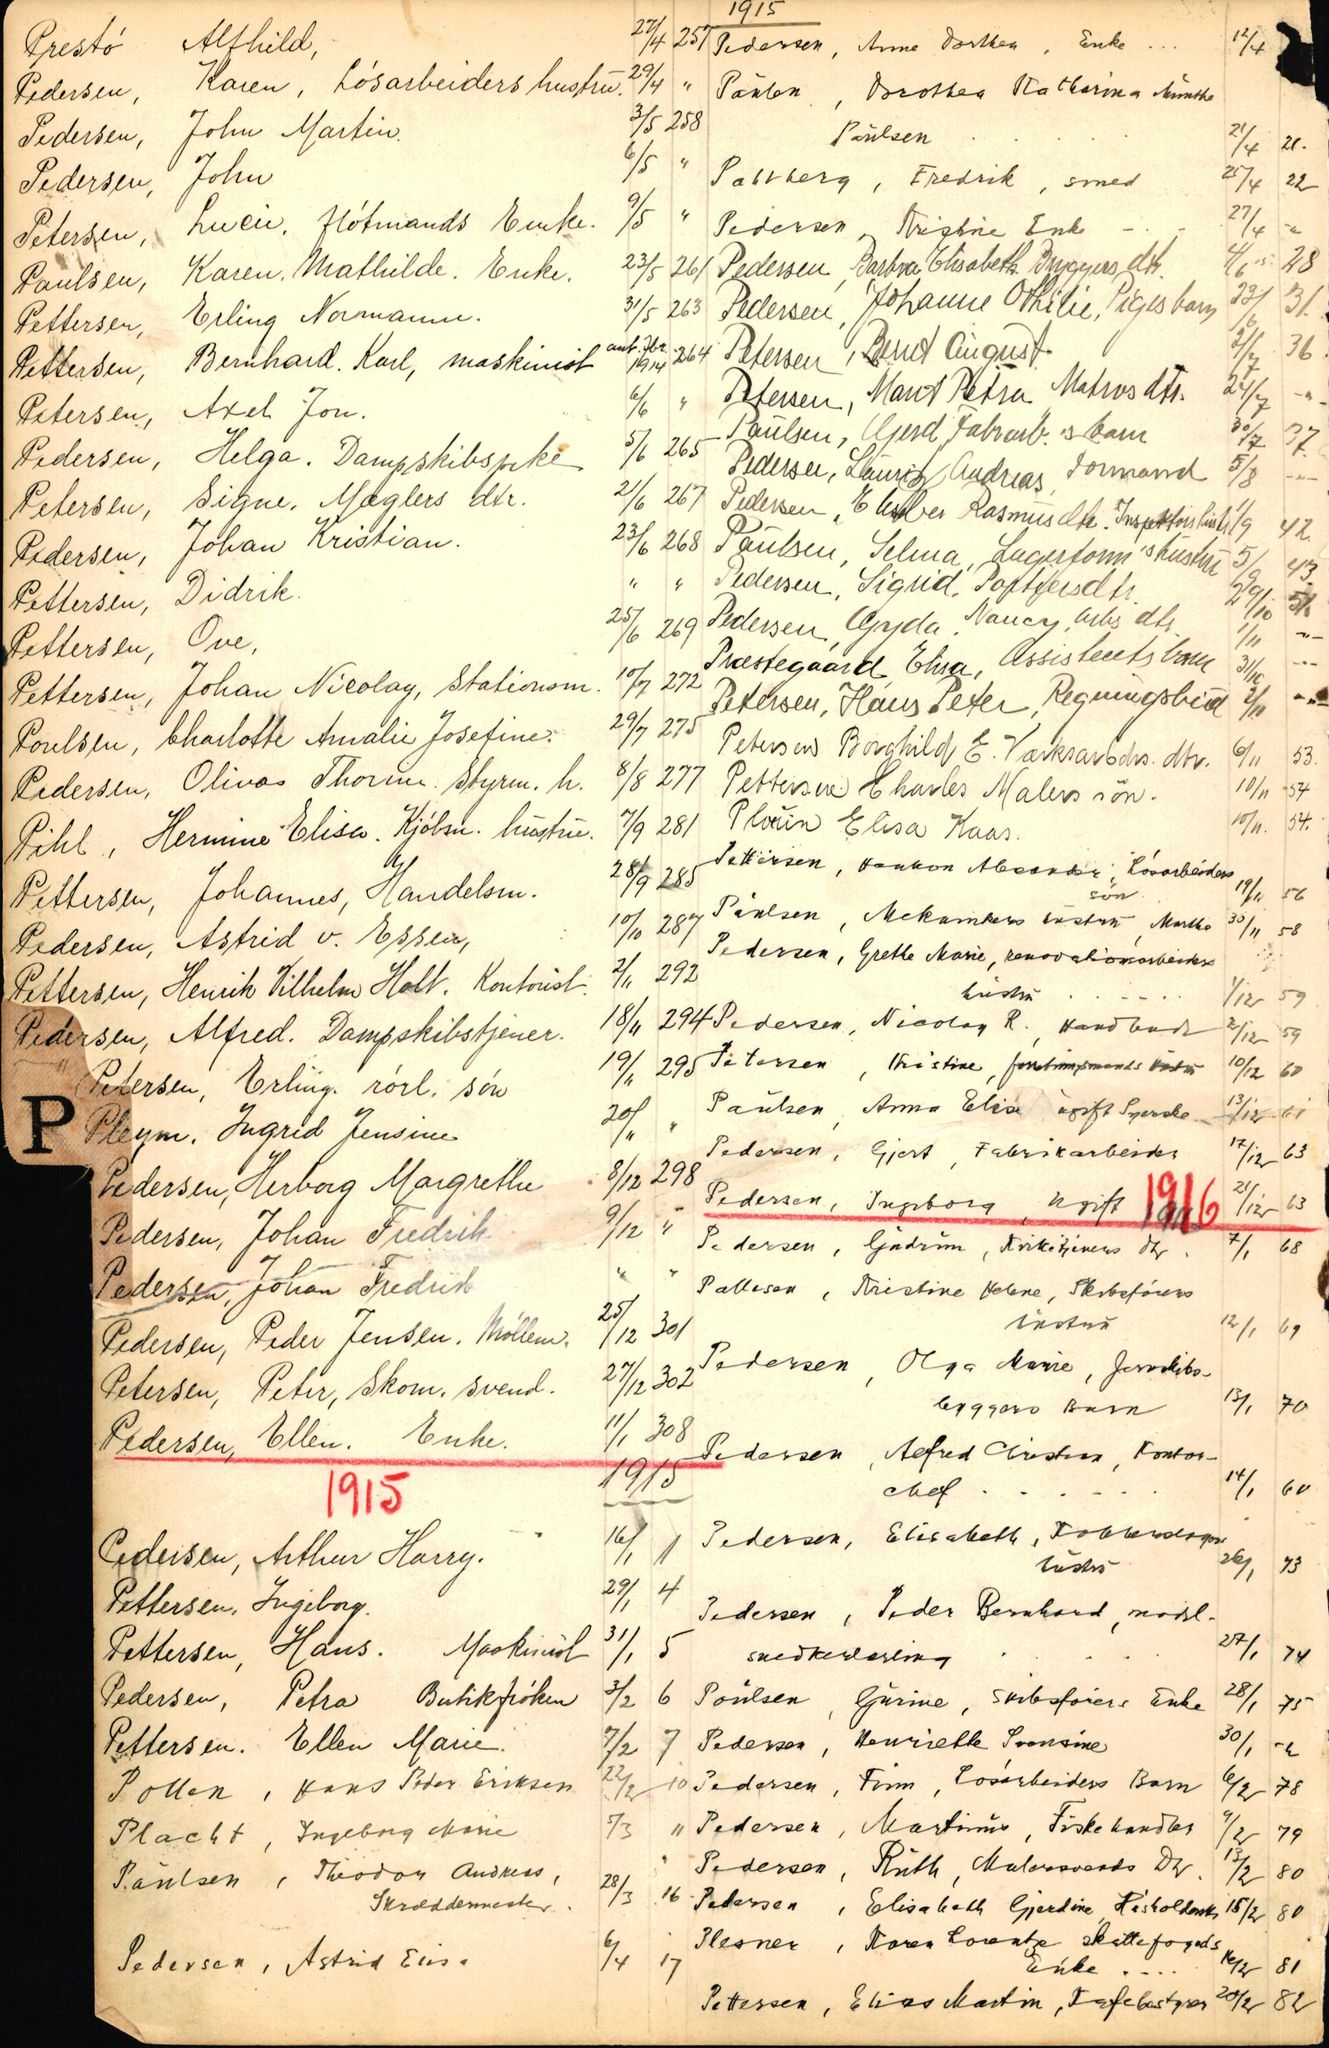 Prestó Alfhild, 27/4 257
Pedersen, Karen, Lósarbeiders hustru. 29/4 "
Pedersen, John Martin. 3/5 258
Pedersen, John 6/5 "
Petersen, Lucie, flótmands Enke. 9/5 "
Paulsen, Karen Mathilde. Enke. 23/5 261
Pettersen, Erling Normann. 31/5 263
Pettersen, Bernhard Karl, maskinist 1914 264
Petersen, Axel Jon. 6/6 "
Pedersen, Helga. Dampskibspike 5/6 265
Petersen, Signe. Mæglers dtr. 21/6 267
Pedersen, Johan Kristian. 23/6 268
Pettersen, Didrik. " "
Pettersen, Ove, 25/6 269
Pettersen, Johan Nicolay, Stationsm. 10/7 272
Poulsen, Charlotte Amalie Josefine. 29/7 275
Pedersen, Olivas Thorine. Styrm. h. 8/8 277
Pihl, Hermine Elisa. Kjóbm. hustru. 7/9 281
Pettersen, Johannes, Handelsm. 28/9 285
Pedersen, Astrid v. Essen, 10/10 287
Pettersen, Henrik Vilhelm Holt. Kontorist. 2/11 292
Pedersen, Alfred. Dampskibstjener. 18/11 294
Petersen, Erling. rórl. són 19/11 295
P
Pleym. Ingrid Jensine 20/11 "
Pedersen, Herborg Margrethe 8/12 298
Pedersen, Johan Fredrik 9/12 "
Pedersen, Johan Fredrik " "
Pedersen, Peder Jensen. Móllem. 25/12 301
Petersen, Peter, Skom. svend. 27/12 302
Pedersen, Ellen. Enke. 11/1 308
1915 1915
Pedersen, Arthur Harry. 16/1 1
Pettersen, Ingeborg. 29/1 4
Pettersen, Hans. Maskinist 31/1 5
Pedersen, Petra Butikfróken 3/2 6
Pettersen. Ellen Marie. 7/2 7
Pollen, Hans Peder Eriksen 22/2 10
Placht, Ingeborg Marie 5/3 "
Paulsen, Theodor Andreas,
Skræddermester. 28/3 16
Pedersen, Astrid Elisa 6/4 17
1915
Pedersen, Anne Dorthea, Enke ... 12/4
Paulsen, Dorothea Katharina Münthe
Paulsen 21/4 21.
Pahlberg, Fredrik, smed 25/4 22
Pedersen, Kristine Enke 27/4 "
Pedersen, Barbra Elisabeth Bryggers dtr. 4/6 28
Pedersen, Johanne Othilie, Piges barn 23/6 31.
Petersen, Bernt August. 2/7 36.
Petersen, Marit Petra Matros dtr. 24/7 "
Paulsen, Gjerd Fabrarb.s barn 30/7 37.
Pedersen, Lauritz Andreas, Formand 5/8 "
Pedersen, Rasmusdtr. 1/9 42.
Paulsen, Selma, Lagerform.s hustru 5/9 43.
Pedersen, Sigrid,
Pedersen, Gyda Nancy, Arbs dtr. 1/11 "
Præstegaard Elisa, Assistents barn 31/10 "
Petersen, Hans Peter, Regningsbud 2/11 "
Petersen Borghild E. Værksarbdrs. dtr. 6/11 53.
Pettersen Charles Malers són. 10/11 54
Ploün Elisa Kaas. 10/11. 54.
Pettersen, Haakon Alexander, Lósarbeiders
són 19/11 56
Paulsen, Mekanikers hustru, Martha 30/11 58
Pedersen, Grethe Marie, renovationsarbeiders
hustru 1/12 59
Pedersen, Nicolay R., Handlende 2/12 59
Petersen, Kristine, forretningsmands hustru 10/12 60
Paulsen, Anna Elise ugift Syerske 13/12 61
Pedersen, Gjert, Fabrikarbeider 17/12 63
Pedersen, Ingeborg, ugift 21/12 63
1916
Pedersen, Gudrun, Kirketjeners Dtr. 7/1 68
Pallesen, Kristine Helene, Skibsfórers
hustru 12/1 69
Pedersen, Olga Marie, Jernskibs-
byggers Barn 13/1 70
Pedersen, Alfred Christian, Kontor-
chef 14/1 60
Pedersen, Elisabeth,
hustru 26/1 73
Pedersen, Peder Bernhard, model-
snedkerlærling 27/1 74
Poulsen, Gurine, Skibsfórers Enke 28/1 75
Pedersen, Henriette Svensine 30/1 "
Pedersen, Finn, Lósarbeiders Barn 6/2 78
Pedersen, Martinus, Fiskehandler 9/2 79
Pedersen, Ruth, Malersvends Dtr. 13/2 80
Pedersen, Elisabeth Gjerdine, Husholderske 15/2 80
Plesner, Karen Lorentze skattefogds
Enke .... 16/2 81
Pettersen, Elias Martin, Kafebestyrer 20/2 82